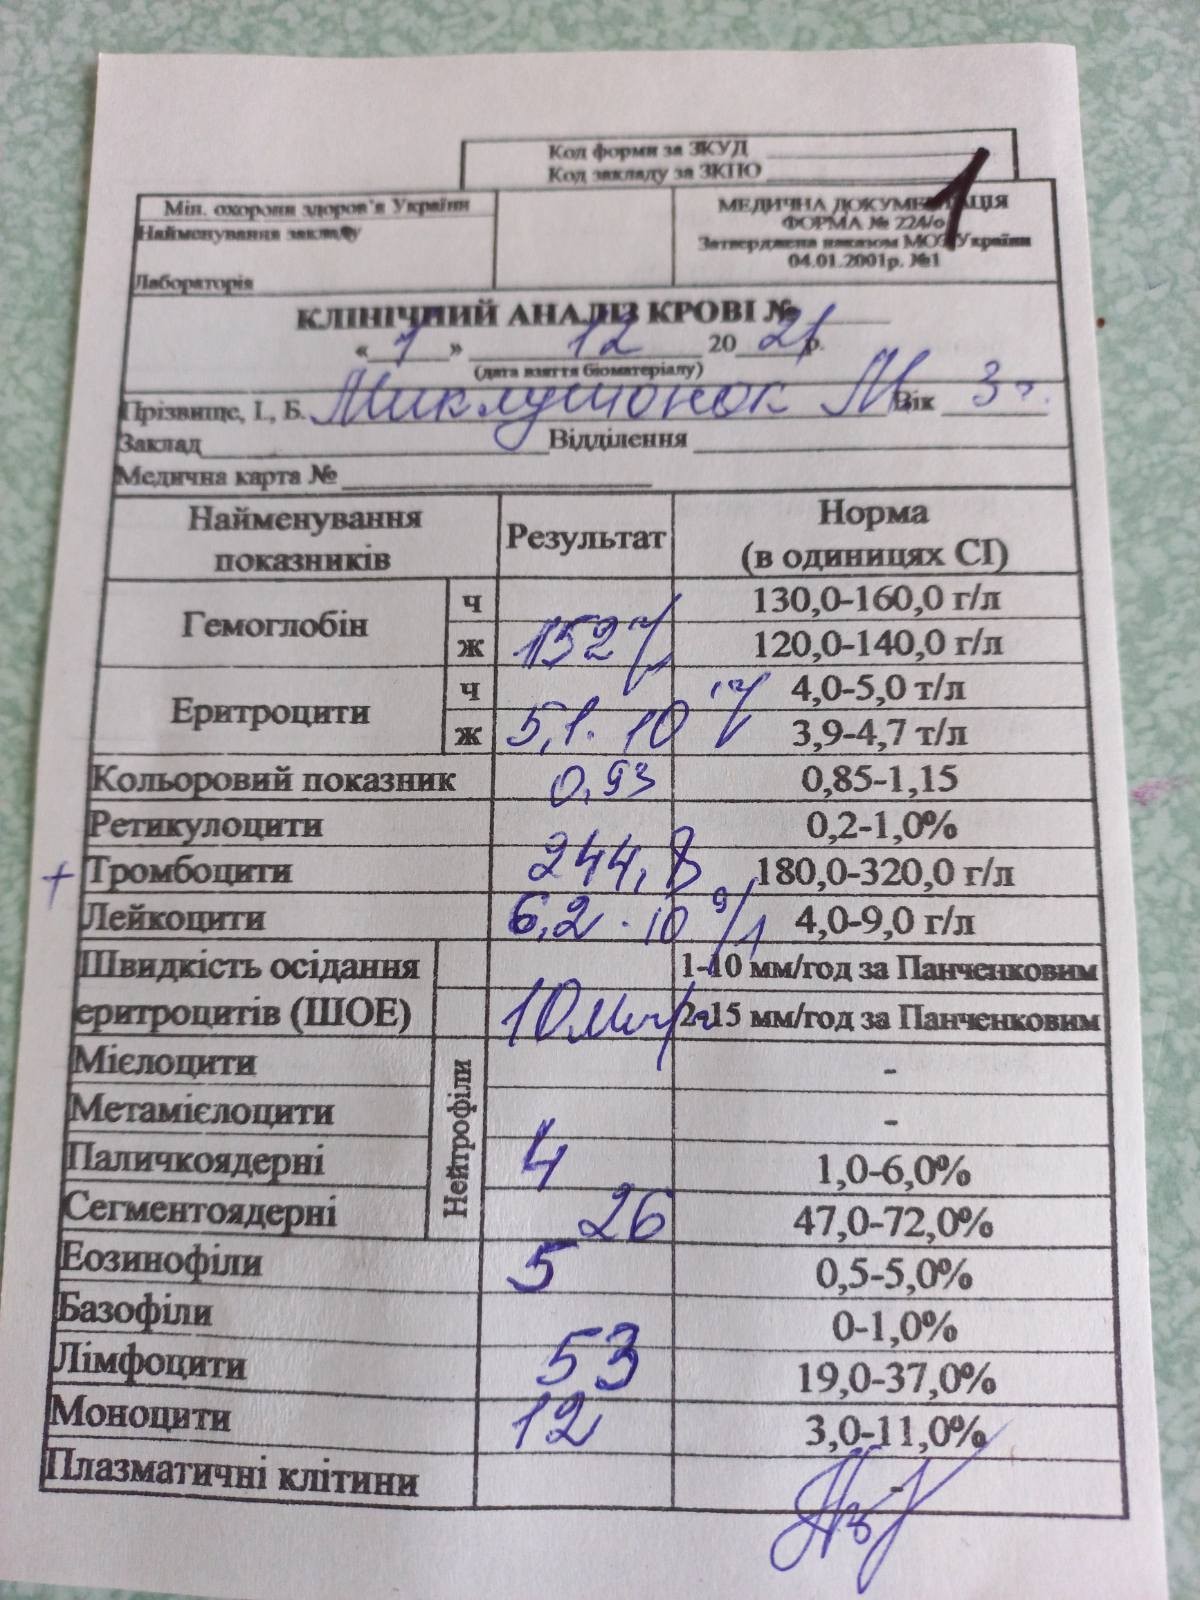 Код форми за ЗКУД
Код закладу за ЗКПО
1
Мін. охорони здоров'я України
Найменування закладу
Лабораторія
МЕДИЧНА ДОКУМЕНТАЦІЯ
ФОРМА № 224/о
Затверджена наказом МОЗ України
04.01.2001р. №1
КЛІНІЧНИЙ АНАЛІЗ КРОВІ №
« 1 » 12 20 21 р.
(дата взяття біоматеріалу)
Прізвище, І., Б. Миклушонок М. Вік 3 г.
Заклад Відділення
Медична карта №
Найменування показників Результат Норма (в одиницях СІ)
Гемоглобін ч 130,0-160,0 г/л
ж 152 120,0-140,0 г/л
Еритроцити ч 4,0-5,0 т/л
ж 5,1 · 10 12/ 3,9-4,7 т/л
Кольоровий показник 0,93 0,85-1,15
Ретикулоцити 0,2-1,0%
+ Тромбоцити 244,8 180,0-320,0 г/л
Лейкоцити 6,2 · 10 9/л 4,0-9,0 г/л
Швидкість осідання 1-10 мм/год за Панченковим
еритроцитів (ШОЕ) 10 мм/г 2-15 мм/год за Панченковим
Нейтрофіли
Мієлоцити -
Метамієлоцити -
Паличкоядерні 4 1,0-6,0%
Сегментоядерні 26 47,0-72,0%
Еозинофіли 5 0,5-5,0%
Базофіли 0-1,0%
Лімфоцити 53 19,0-37,0%
Моноцити 12 3,0-11,0%
Плазматичні клітини -